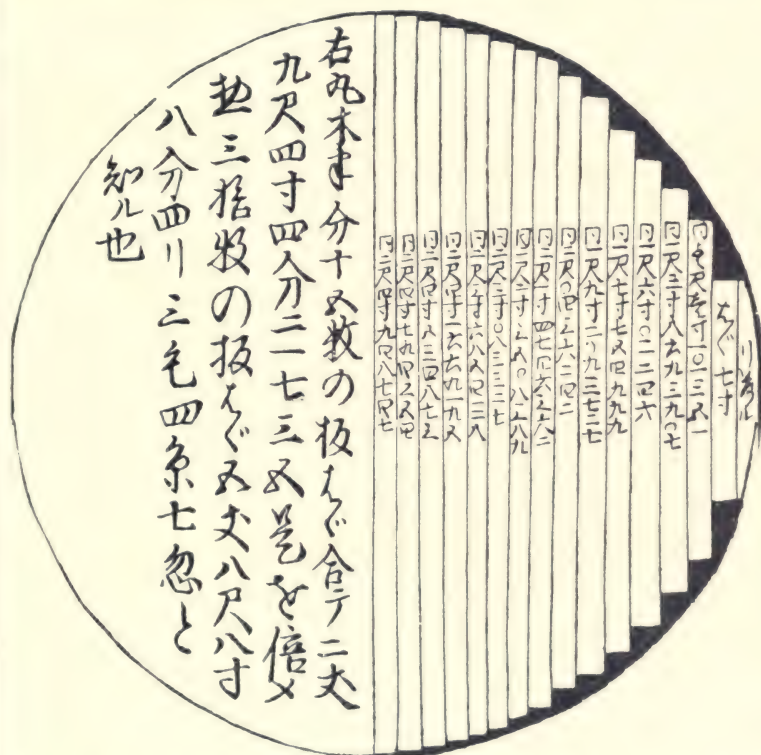 リ為ル
はゞ七寸
同一尺壱寸一〇一三五一
同一尺三寸八六九三九〇七
同一尺六寸〇一一二四六
同一尺七寸七五四九九九
同一尺九寸二〇九三七二七
同二尺〇四三六二四二
同二尺一寸四七四六三六二
同二尺二寸三五〇八三八九
同二尺三寸〇八三三二七
同二尺三寸六八五四三八
同二尺四寸一六六九一九五
同二尺四寸五三四八七三
同二尺四寸七九四三五四
同二尺四寸九四八七四七
右丸木半分十五枚の板はゞ合テ二丈
九尺四寸四分二一七三五是を倍〆
惣三拾枚の板はゞ五丈八尺八寸
八分四リ三毛四糸七忽と
知ル也